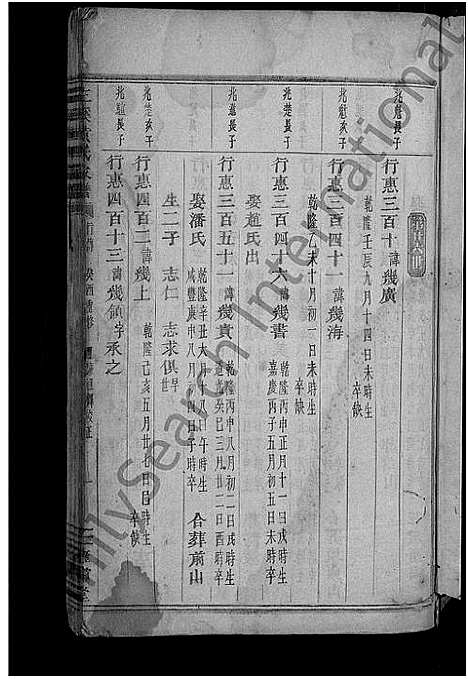 兆魁長子
行惠三百十諱幾廣
乾隆壬辰九月十四日未時生
卒缺
兆魁次子
行惠三百四十一諱幾海
乾隆乙未十月初一日未時生
卒缺
兆楚長子
行惠三百四十六諱幾書
乾隆丙申正月十一日戌時生
嘉慶丙子五月初五日未時卒
娶趙氏出
兆魁長子
行惠三百五十一諱幾貴
乾隆丙申八月初二日戌時生
道光癸巳三月廿二日酉時卒
娶潘氏
乾隆辛丑六月十八日午時生
咸豐庚申八月初四日子時卒
合葬前山
生二子 志仁 志求俱早世
兆楚次子
行惠四百十二諱幾上
乾隆己亥五月廿七日巳時生
卒缺
兆魁長子
行惠四百十三諱幾領字承之
FamilySearch International